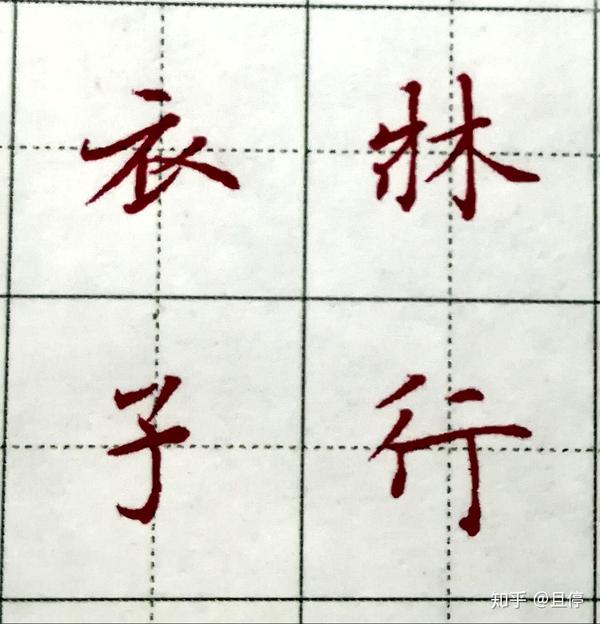 衣牀
子行
知乎 @且停